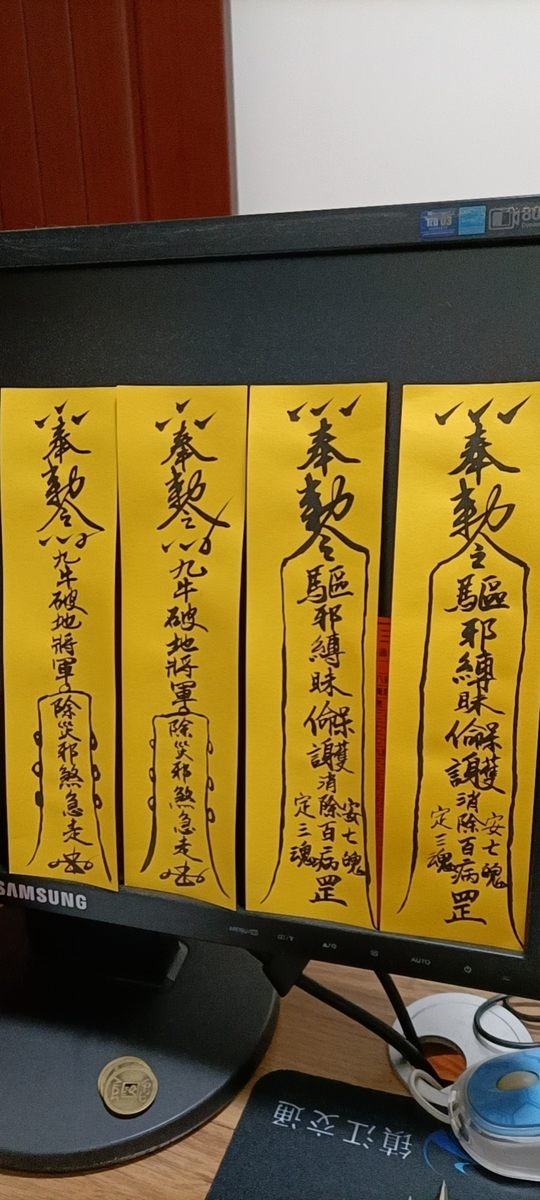 奉
勅令
九牛破地將軍
除災邪煞急走
奉
勅令
九牛破地將軍
除災邪煞急走
奉
勅令
驅邪縛昧
保護
消除百病
安七魄
定三魂
罡
奉
勅令
驅邪縛昧
保護
消除百病
安七魄
定三魂
罡
SAMSUNG
MENU
AUTO
三
镇江交通